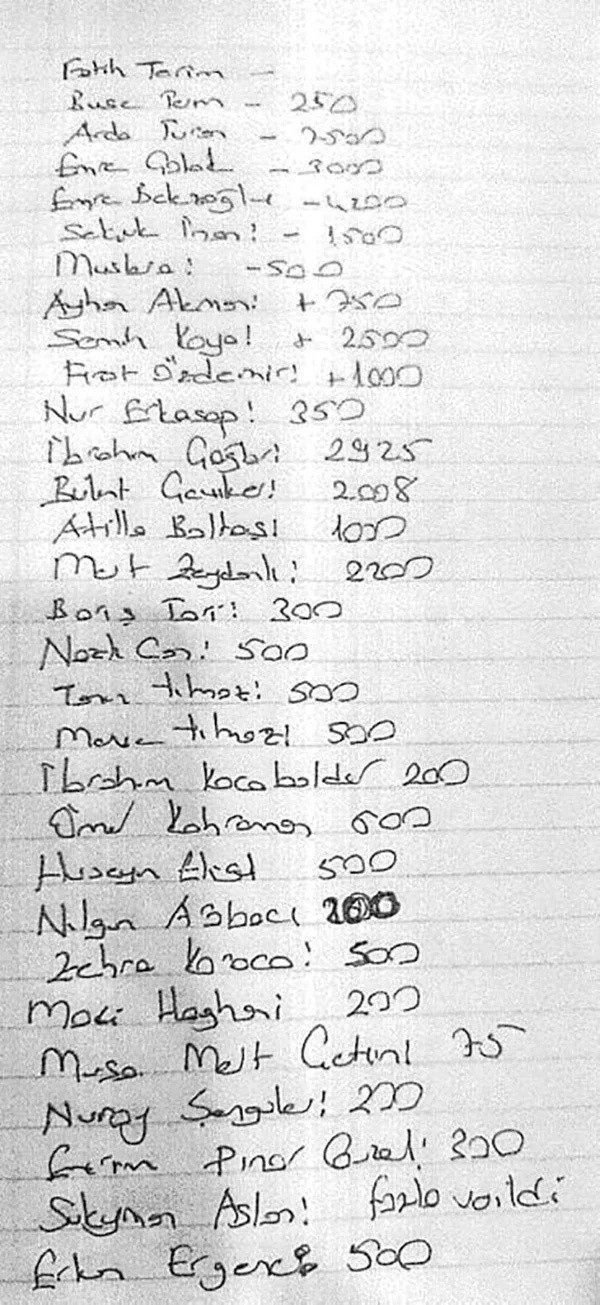 Fatih Terim -
Buse Terim - 250
Arda Turan - 7500
Emre Çolak - 3000
Emre Belezoğlu - 4200
Selçuk İnan! - 1500
Muslera! - 500
Ayhan Akman! + 750
Semih Kaya! + 2500
Fırat Özdemir! + 1000
Nur Erkasap! 350
İbrahim 2925
Bülent 2008
Atilla Baltaş! 1000
Mert Zeydanlı! 2200
Barış 300
Nazlı Can! 500
Taner Yılmaz! 500
Merve Yılmaz! 500
İbrahim Kocabaldır 200
Ömer Kahraman 600
Hüseyin 500
Nilgün 200
Zehra Karaca! 500
200
Musa Mert Çetin! 75
Nuray Şengüler! 200
Pınar Güzel! 300
Süleyman Aslan! fazla vaildi
Erkan 500